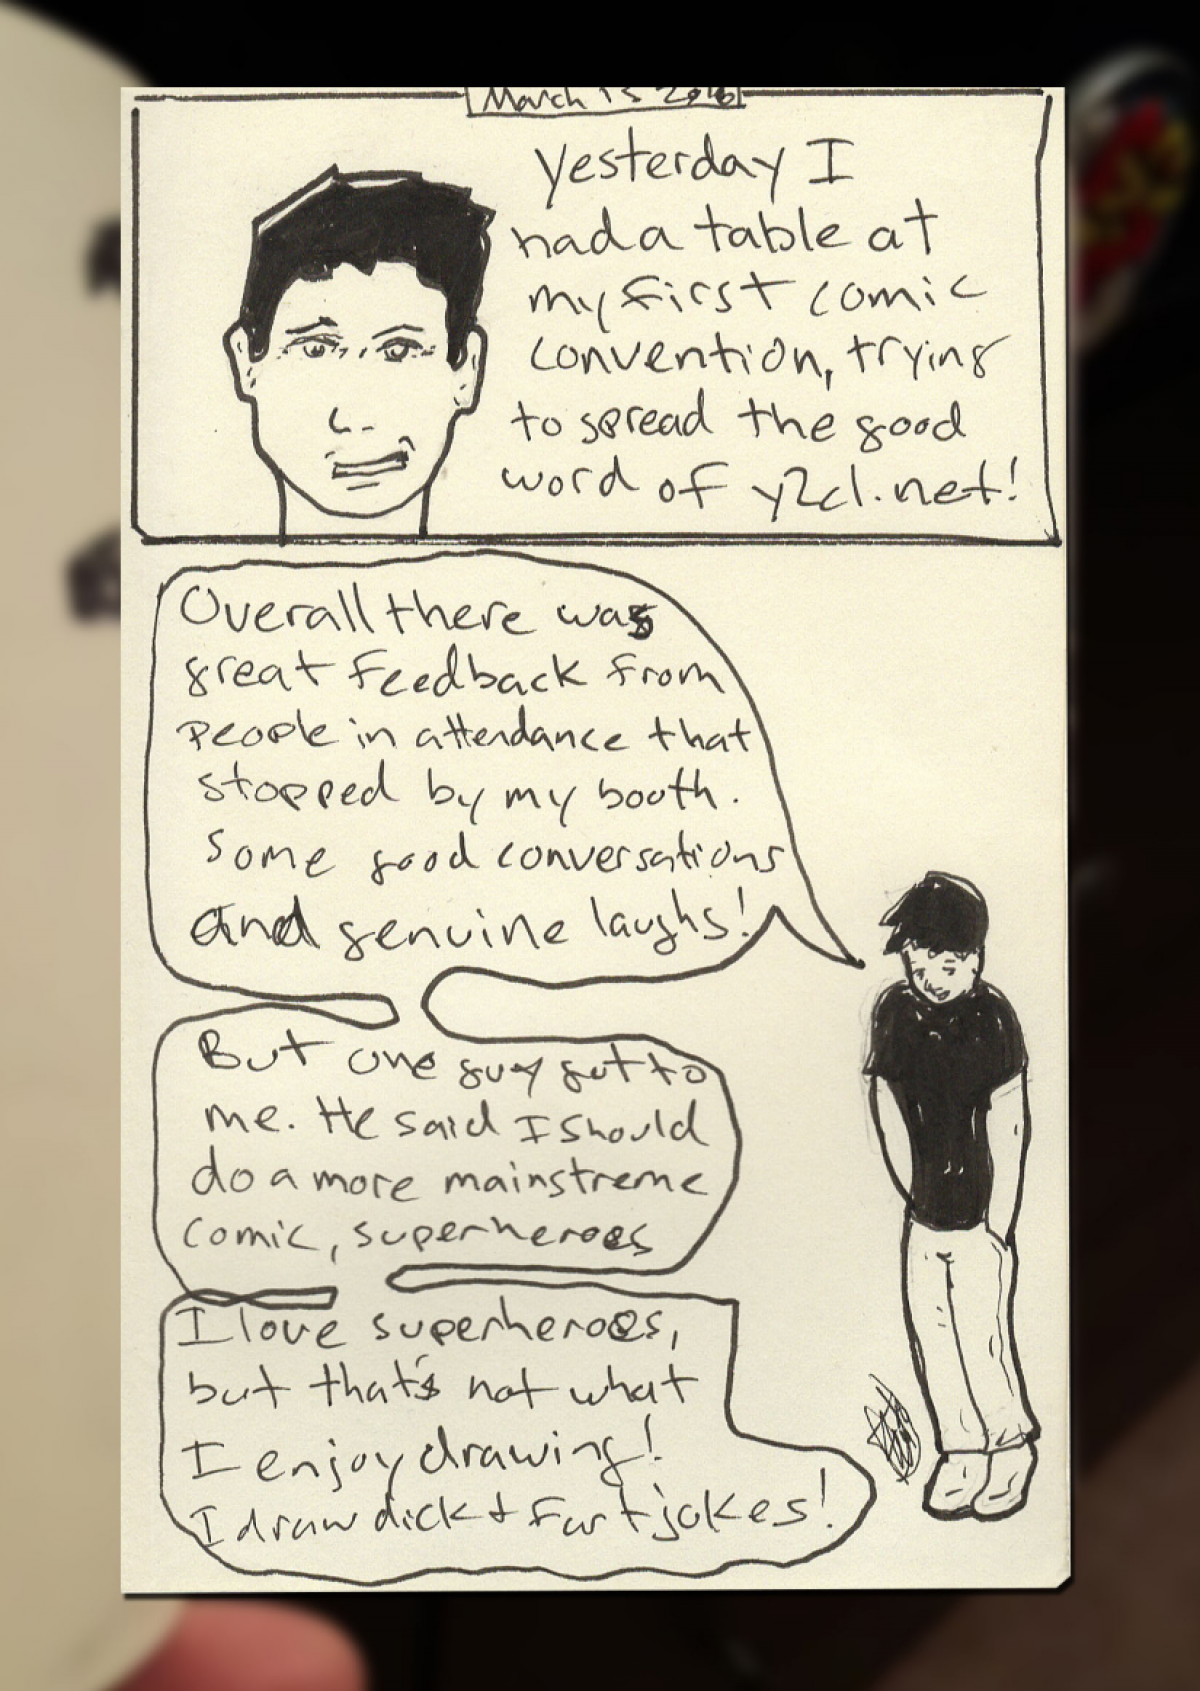 March 15 2016
Yesterday I
had a table at
my first comic
convention, trying
to spread the good
word of y2cl.net!
Overall there was
great feedback from
people in attendance that
stopped by my booth.
Some good conversations
and genuine laughs!
But one guy got to
me. He said I should
do a more mainstreme
comic, superheroes
I love superheroes,
but that's not what
I enjoy drawing!
I draw dick + fart jokes!